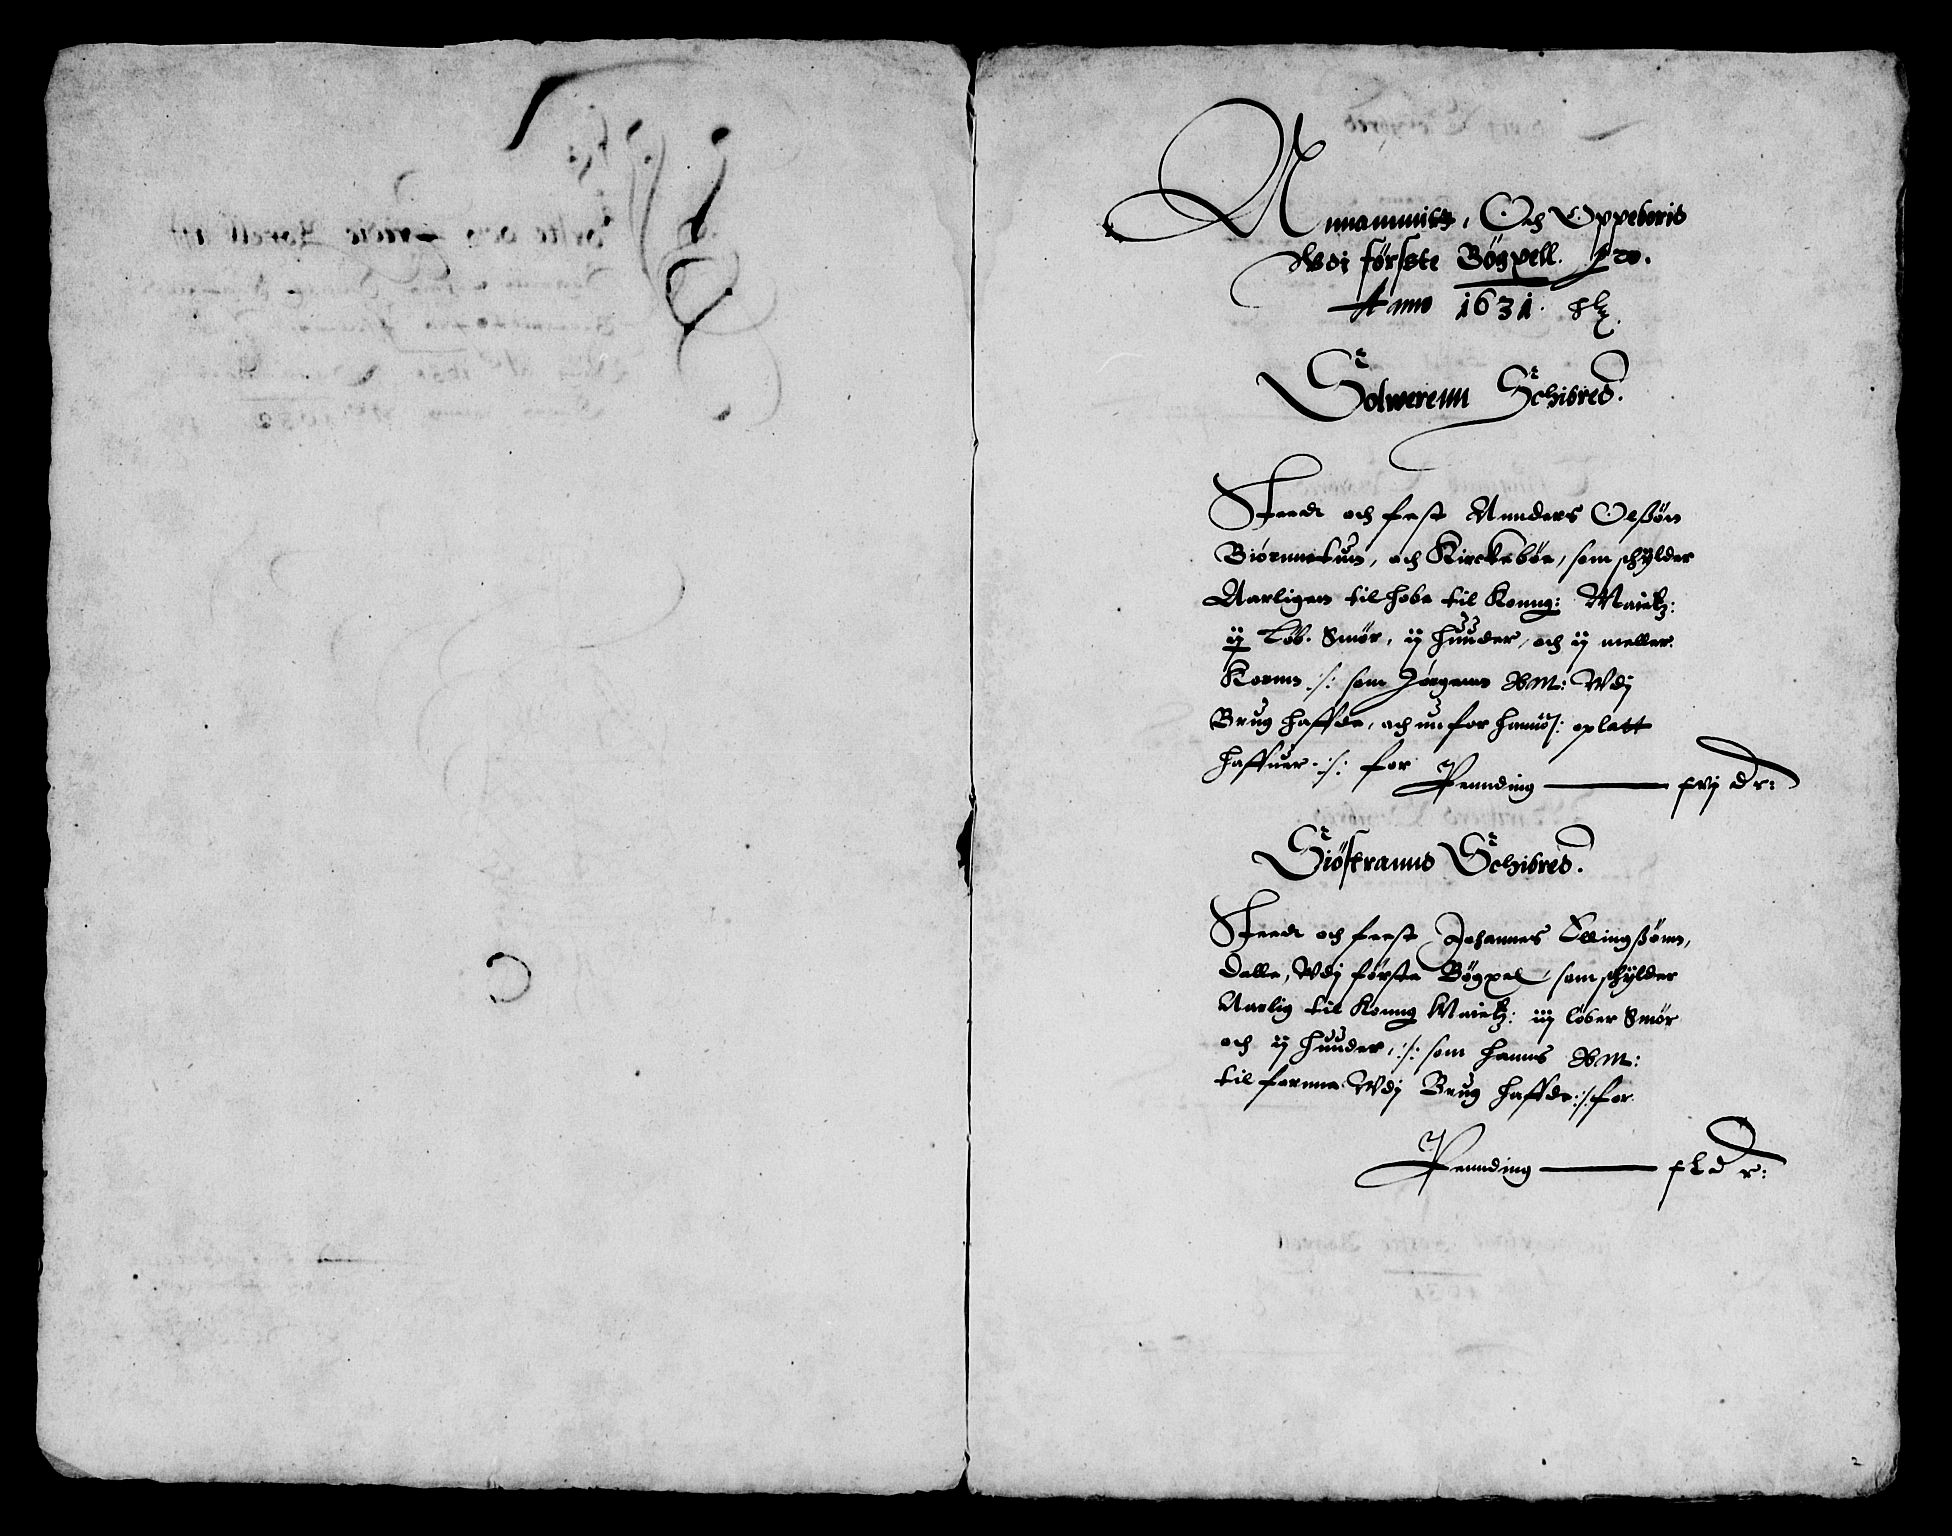 Annammitt, Och Oppeboris
Wdj første Bögxell. pro.
Anno 1631. etz.
Solwerenn Schibred.
Steedt och fest Annders Olßön
Biörnnetun, och Kirckebőe, som schÿlder
Aarligen til hobe til Konng: Maietz:
ij Löb. Smör, ij huuder, och ij meller
Kornn ./. som Jörgenn AM: Wdj
Brug haffde, och nu for hannd ./: oplatt
haffuer ./. for
Pennding —— xvj dr:
Siöstrannd Schibred.
Steedt och feest Johannes Ellingßönn,
Dalle, Wdj første Bögxel, som schÿlder
Aarlig til Konng Maietz: iij löber Smör
och ij huuder, ./. som hanns AM:
til forne Wdj Brug haffde ./. for
Pennding —— xL dr:
2